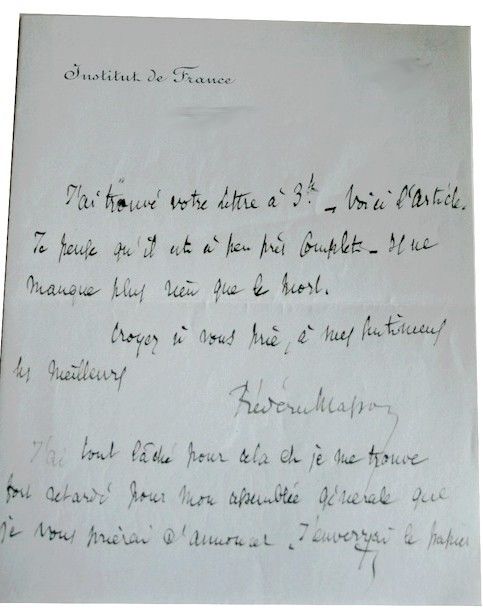 Institut de France
J'ai trouvé votre lettre à 3h _ Voici l'article.
Je pense qu'il est à peu près complet _ Il ne
manque plus rien que le mort.
Croyez je vous prie, à mes sentiments
les meilleurs
Frédéric Masson
J'ai tout lâché pour cela et je me trouve
fort retardé pour mon assemblée générale que
je vous prierai d'annoncer. J'enverrai le papier